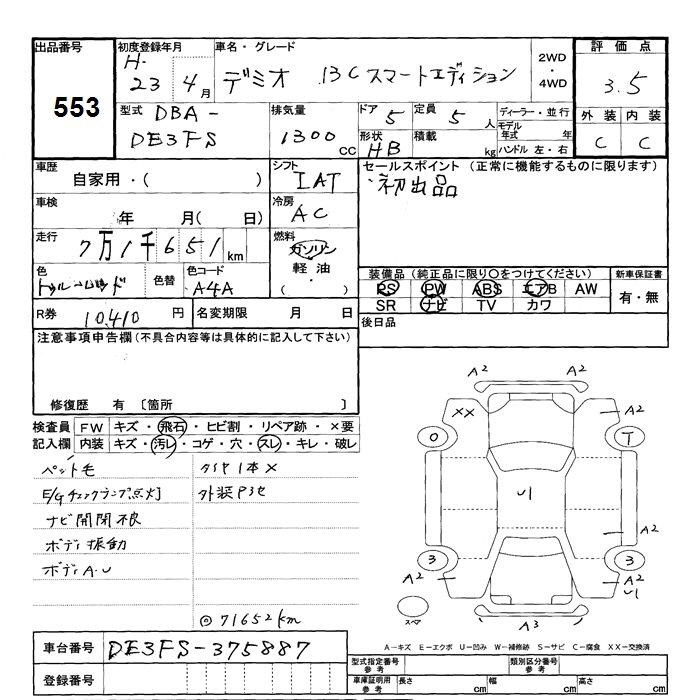 出品番号 初度登録年月 車名・グレード 2WD・4WD 評価点
553 H. 23 4月 デミオ 13C スマートエディション 3.5
型式 DBA- 排気量 ドア 5 定員 5人 ディーラー・並行 外装 内装
DE3FS 1300 CC 形状 HB 積載 kg モデル年式 年 C C
ハンドル 左・右
車歴 シフト セールスポイント (正常に機能するものに限ります)
自家用・( ) IAT 初出品
車検 年 月( 日) 冷房 AC
走行 7万1千651km 燃料 ガソリン
軽油
・( )
色 色替 色コード 装備品 (純正品に限り○をつけてください) 新車保証書
トゥルーレッド A4A PS PW ABS エアB AW 有・無
SR ナビ TV カワ
R券 10,410 円 名変期限 月 日 後日品
注意事項申告欄 (不具合内容等は具体的に記入して下さい)
修復歴 有 〔箇所 〕
検査員 FW キズ・飛石・ヒビ割・リペア跡・×要
記入欄 内装 キズ・汚レ・コゲ・穴・スレ・キレ・破レ
ペット毛 タイヤ1本×
E/Gチェックランプ点灯 外装P3セ
ナビ開閉不良
ボディ振動
ボディA.U
◎71652km
A2 A2
XX A2
O T
U1
A2
3 3
A2 A2
U1
スペア A3
A－キズ E－エクボ U－凹み W－補修跡 S－サビ C－腐食 XX－交換済
車台番号 DE3FS-375887
登録番号
型式指定番号 参考 類別区分番号 参考
車庫証明用 参考 長さ cm 幅 cm 高さ cm